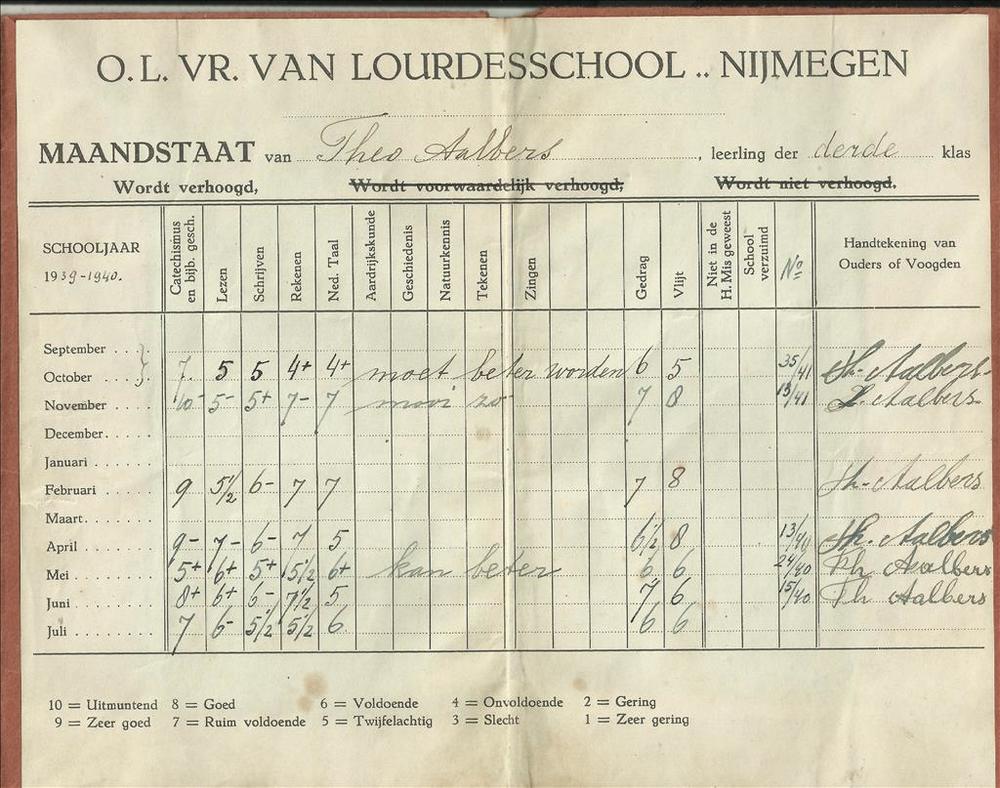 O. L. VR. VAN LOURDESSCHOOL .. NIJMEGEN
MAANDSTAAT van Theo Aalbers, leerling der derde klas
Wordt verhoogd, Wordt voorwaardelijk verhoogd, Wordt niet verhoogd.
SCHOOLJAAR
1939-1940.
Catechismus en bijb. gesch.
Lezen
Schrijven
Rekenen
Ned. Taal
Aardrijkskunde
Geschiedenis
Natuurkennis
Tekenen
Zingen
Gedrag
Vlijt
Niet in de H. Mis geweest
School verzuimd
No
Handtekening van Ouders of Voogden
September . . .
October . . . 7. 5 5 4+ 4+ moet beter worden 6 5 35/41 Th. Aalbers.
November . . . 10- 5- 5+ 7- 7 mooi zo 7 8 13/41 Aalbers.
December . . . . .
Januari . . . . . .
Februari . . . . . 9 5 1/2 6- 7 7 7 8 Th. Aalbers
Maart. . . . . . .
April . . . . . . . 9- 7- 6- 7 5 6 1/2 8 13/40 Th. Aalbers
Mei . . . . . . . . 5+ 6+ 5+ 5 1/2 6+ kan beter 6 6 24/40 Th Aalbers
Juni . . . . . . . 8+ 6+ 6- 7 1/2 5 7 6 15/40 Th Aalbers
Juli . . . . . . . . 7 6- 5 1/2 5 1/2 6 6 6
10 = Uitmuntend 8 = Goed 6 = Voldoende 4 = Onvoldoende 2 = Gering
9 = Zeer goed 7 = Ruim voldoende 5 = Twijfelachtig 3 = Slecht 1 = Zeer gering